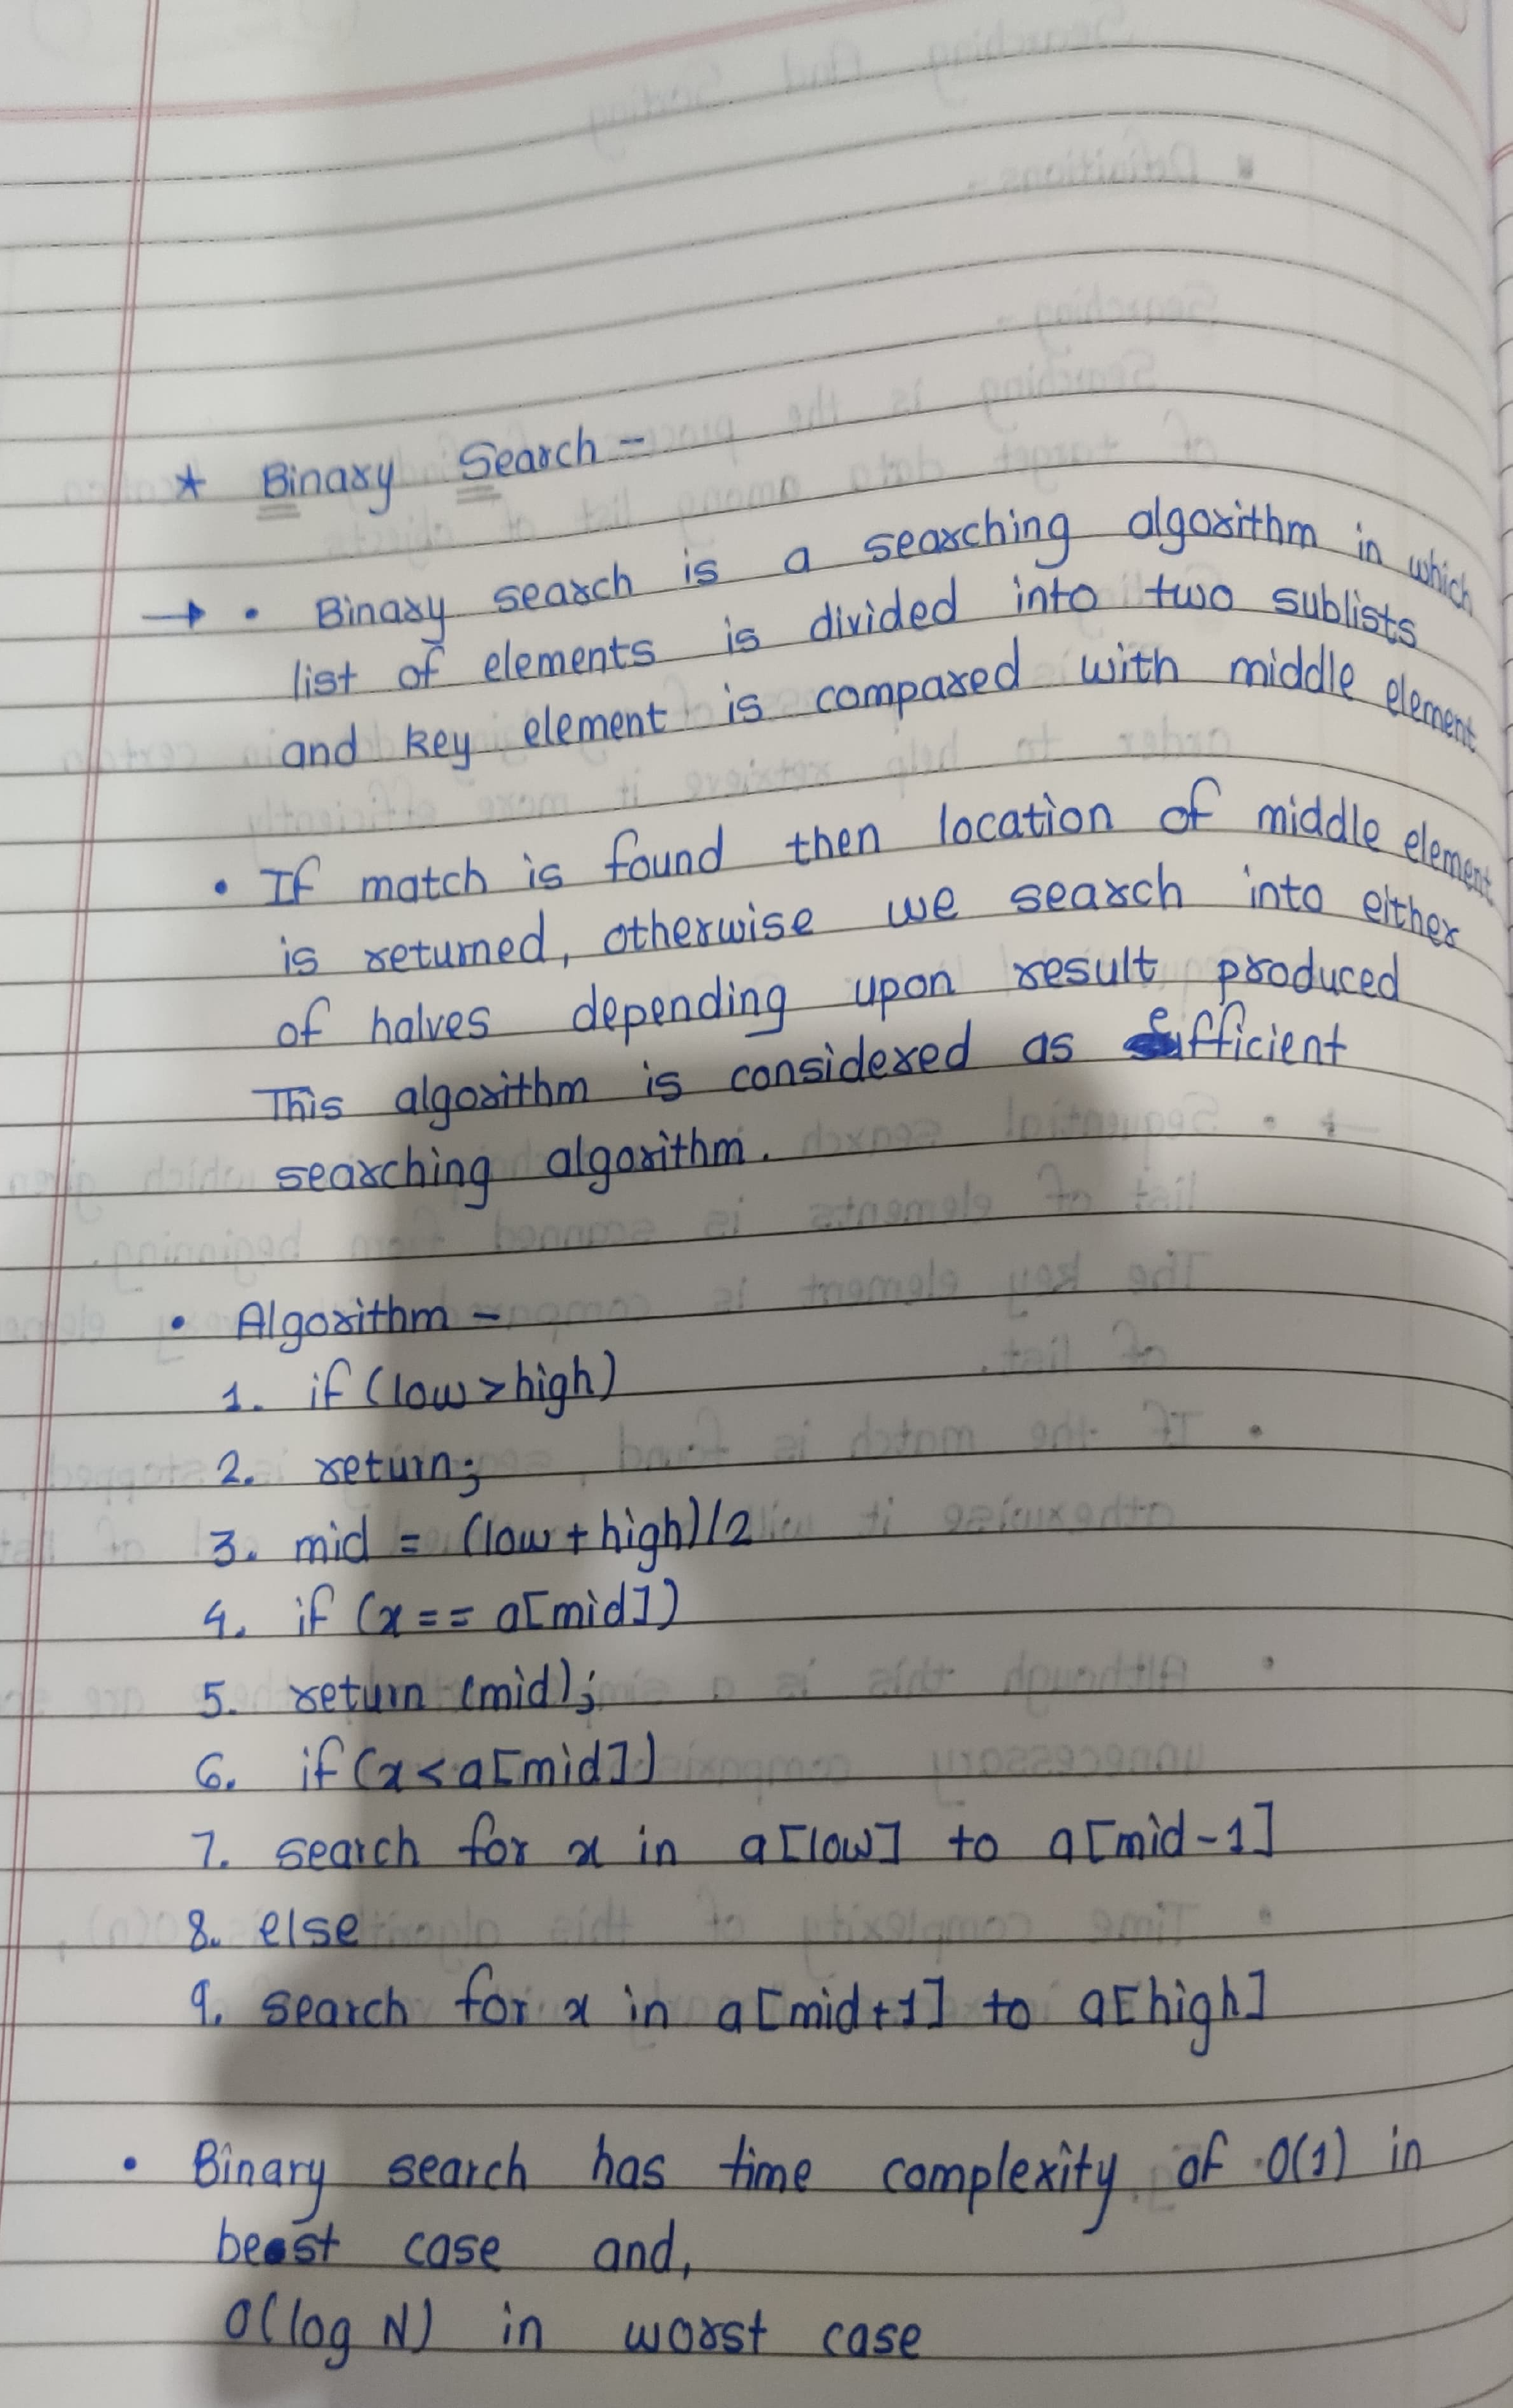 * Binary Search -
→ • Binary search is a searching algorithm in which
list of elements is divided into two sublists
and key element is compared with middle element
• If match is found then location of middle element
is returned, otherwise we search into either
of halves depending upon result produced
This algorithm is considered as efficient
searching algorithm.
• Algorithm -
1. if (low > high)
2. return;
3. mid = (low + high)/2
4. if (x == a[mid])
5. return (mid);
6. if (x < a[mid])
7. search for x in a[low] to a[mid-1]
8. else
9. search for x in a[mid+1] to a[high]
• Binary search has time complexity of O(1) in
best case and,
O(log N) in worst case